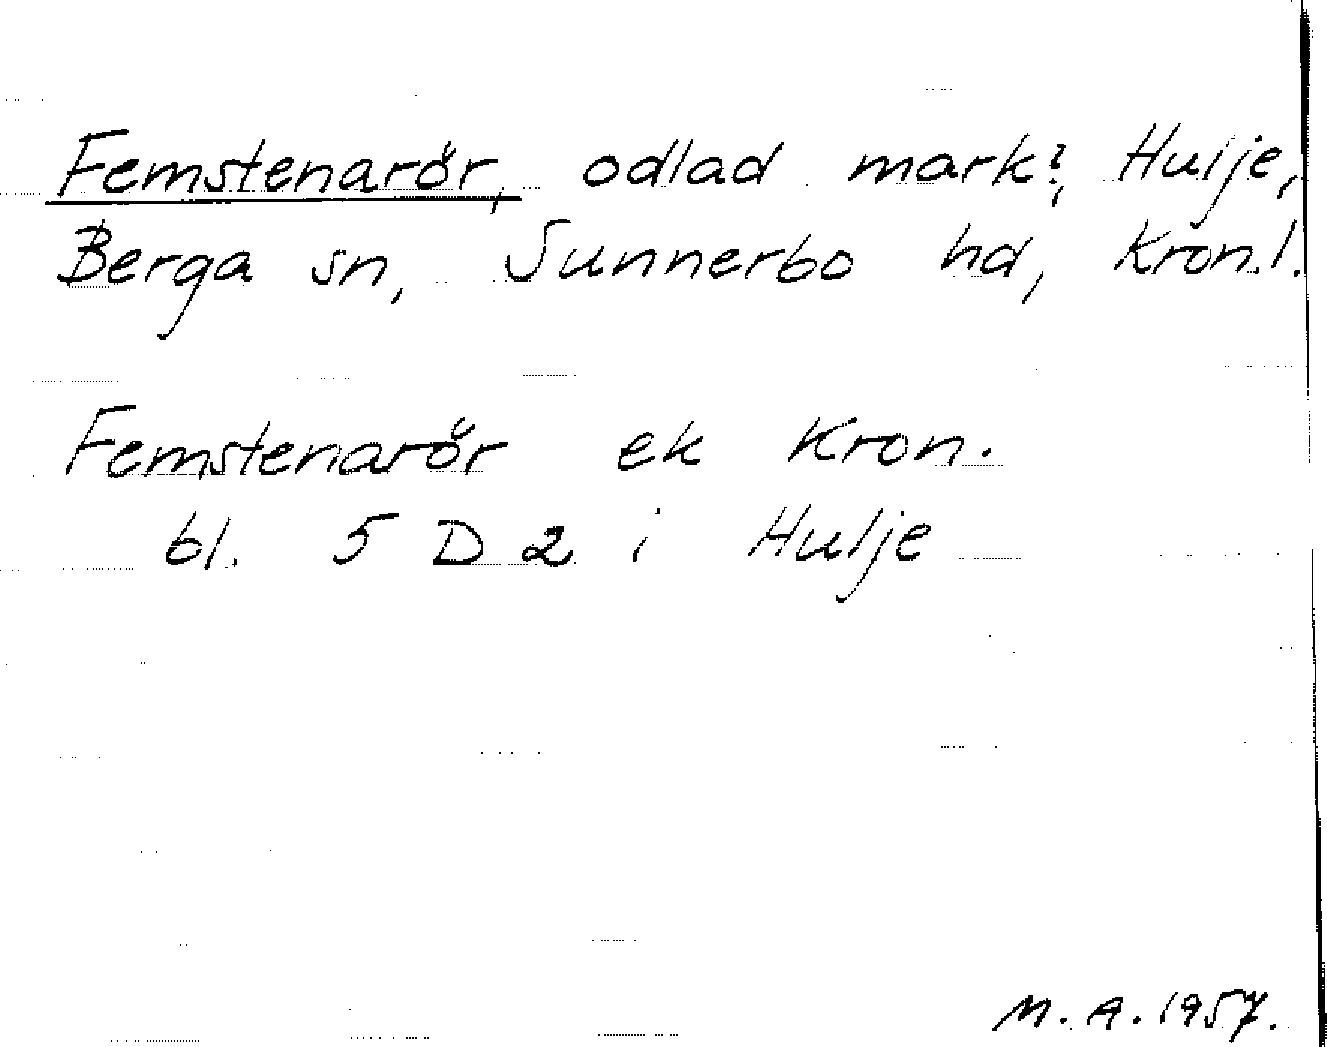 Femstenarör, odlad mark?, Hulje,
Berga sn, Sunnerbo hd, Kron.l.
Femstenarör ek Kron.
bl. 5 D 2 i Hulje
M.A. 1957.